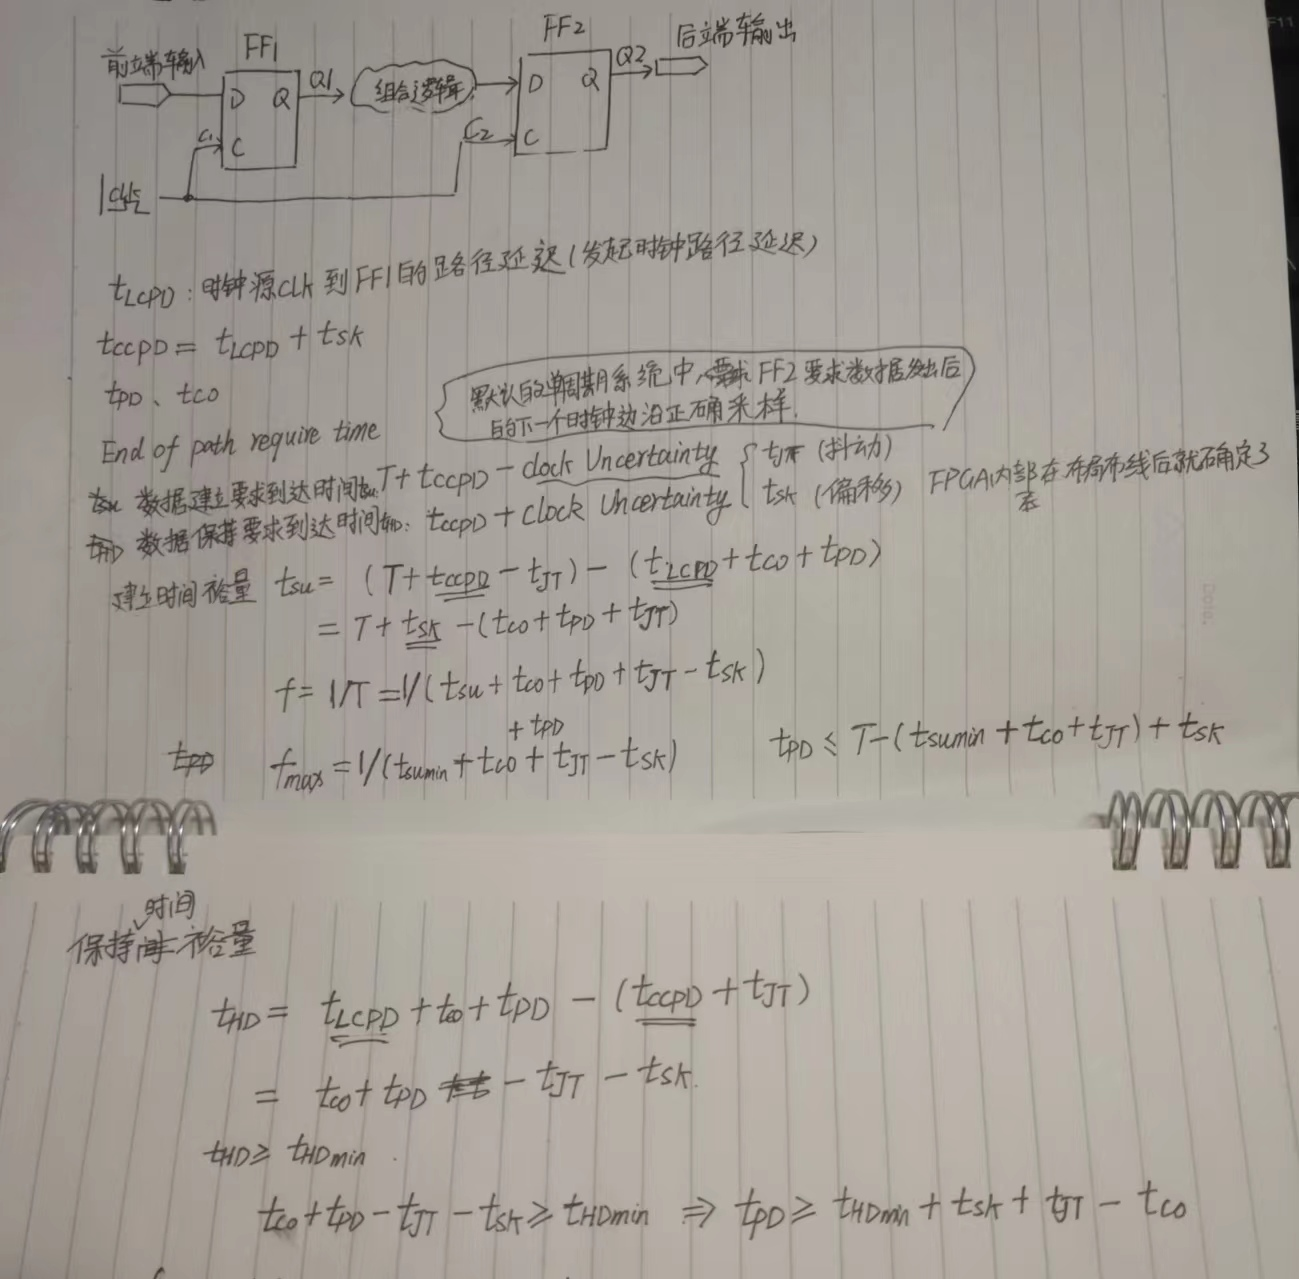 前端输入 FF1 FF2 后端输出
D Q Q1 组合逻辑 D Q Q2
C1 C C2 C
clk
tLCPD：时钟源clk到FF1的路径延迟(发起时钟路径延迟)
tCCPD = tLCPD + tSK
tPD、tCO
默认的单周期系统中, FF2要求数据发出后
的下一个时钟边沿正确采样.
End of path require time
tsu 数据建立要求到达时间 T + tCCPD - clock Uncertainty { tJT (抖动)
tHD 数据保持要求到达时间: tCCPD + clock Uncertainty { tSK (偏移) FPGA内部在布局布线后就确定了
建立时间裕量 tsu = (T + tCCPD - tJT) - (tLCPD + tCO + tPD)
= T + tSK - (tCO + tPD + tJT)
f = 1/T = 1/(tsu + tCO + tPD + tJT - tSK)
+ tPD
tPD fmax = 1/(tsumin + tCO + tJT - tSK) tPD ≤ T - (tsumin + tCO + tJT) + tSK
时间
保持裕量
tHD = tLCPD + tCO + tPD - (tCCPD + tJT)
= tCO + tPD - tJT - tSK.
tHD ≥ tHDmin .
tCO + tPD - tJT - tSK ≥ tHDmin ⇒ tPD ≥ tHDmin + tSK + tJT - tCO